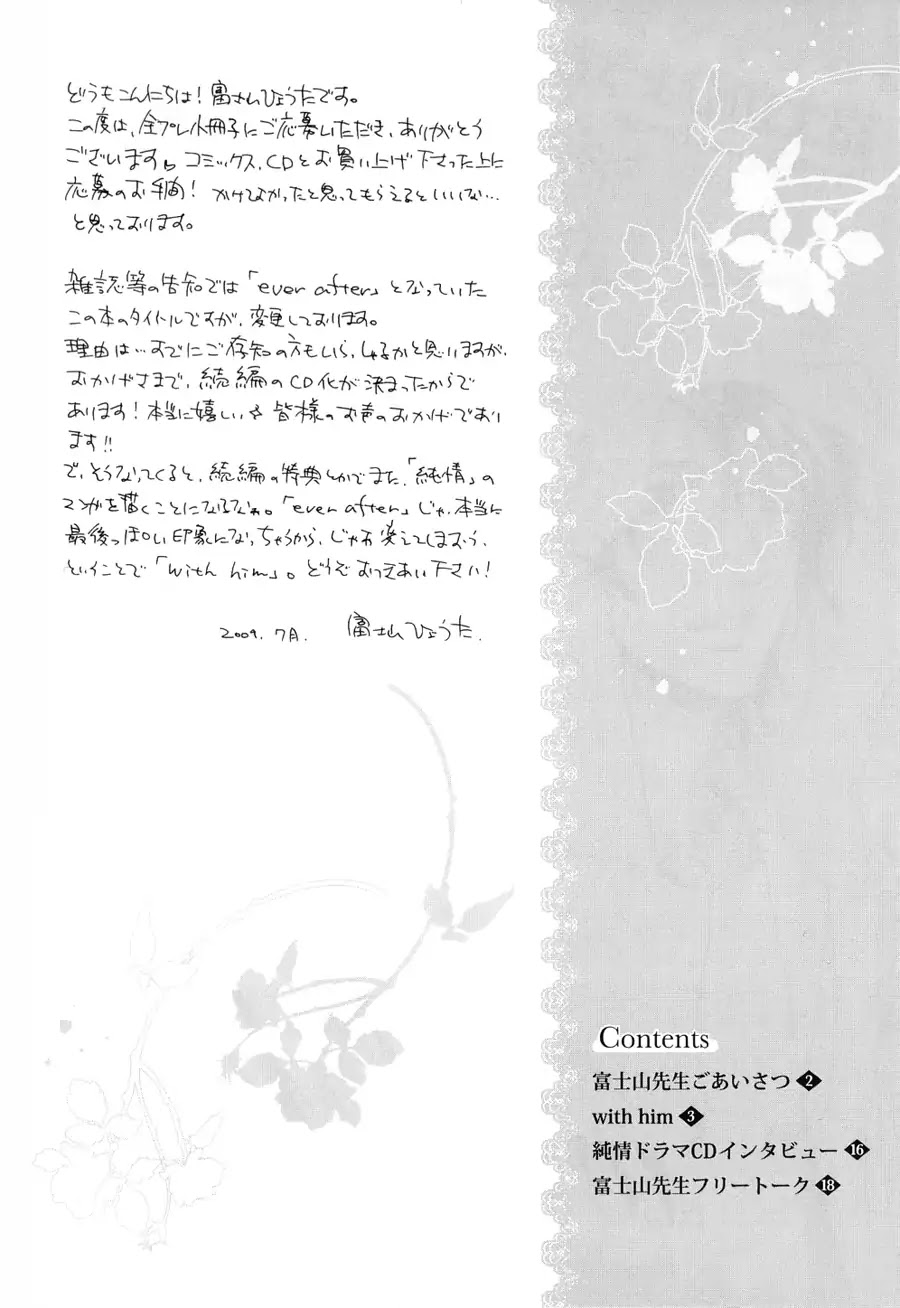 どうもこんにちは！富士山ひょうたです。
この度は、全プレ小冊子にご応募いただき、ありがとう
ございます。コミックス、CDとお買い上げ下さった上に
応募のお手間！かけてよかったと思ってもらえるといいな…
と思っております。
雑誌等の告知では「ever after」となっていた
この本のタイトルですが、変更しております。
理由は…すでにご存知の方もいらっしゃるかと思いますが、
おかげさまで、続編のCD化が決まったからで
あります！本当に嬉しい 皆様のお声のおかげであり
ます!!
で、そうなってくると、続編の特典とかでまた、「純情」の
マンガを描くことになるなぁ。「ever after」じゃ、本当に
最後っぽい印象になっちゃうから、じゃあ変えてしまおう、
ということで「with him」。どうぞおつきあい下さい！
2009. 7月. 富士山ひょうた.
Contents
富士山先生ごあいさつ 2
with him 3
純情ドラマCDインタビュー 16
富士山先生フリートーク 18